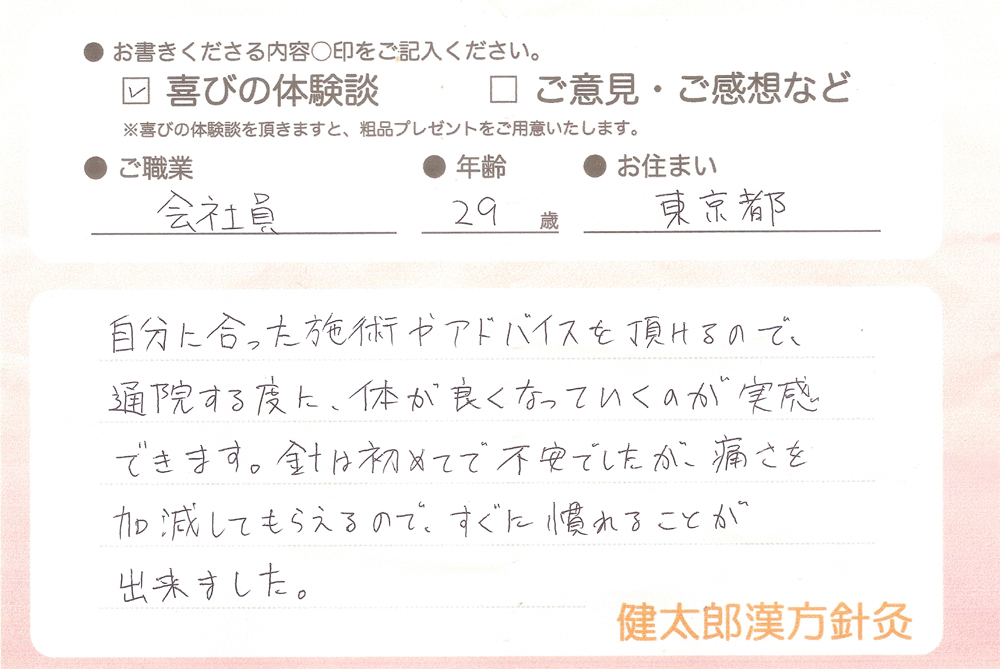 ● お書きくださる内容○印をご記入ください。
☑ 喜びの体験談 □ ご意見・ご感想など
※喜びの体験談を頂きますと、粗品プレゼントをご用意いたします。
● ご職業 ● 年齢 ● お住まい
会社員 29 歳 東京都
自分に合った施術やアドバイスを頂けるので、
通院する度に、体が良くなっていくのが実感
できます。針は初めてで不安でしたが、痛さを
加減してもらえるので、すぐに慣れることが
出来ました。
健太郎漢方針灸